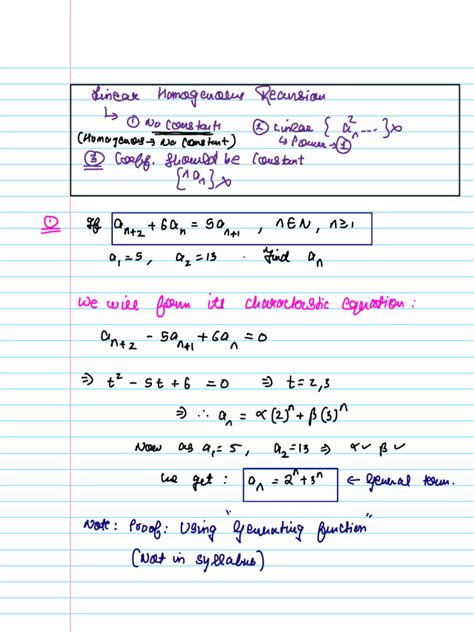 Linear Homogeneous Recursion
↳ ① No constants ② Linear { a_n^2 ... } ×
(Homogeneous → No constant) ↳ Power → ①
③ Coeff. should be constant
{n a_n} ×
① If a_{n+2} + 6a_n = 5a_{n+1} , n ∈ N, n≥1
a_1 = 5, a_2 = 13 . Find a_n
We will form its characteristic equation :
a_{n+2} - 5a_{n+1} + 6a_n = 0
⇒ t^2 - 5t + 6 = 0 ⇒ t = 2,3
⇒ ∴ a_n = α(2)^n + β(3)^n
Now as a_1 = 5, a_2 = 13 ⇒ α✓ β✓
we get : a_n = 2^n + 3^n ← General term.
Note: Proof: Using "Generating function"
(Not in syllabus)